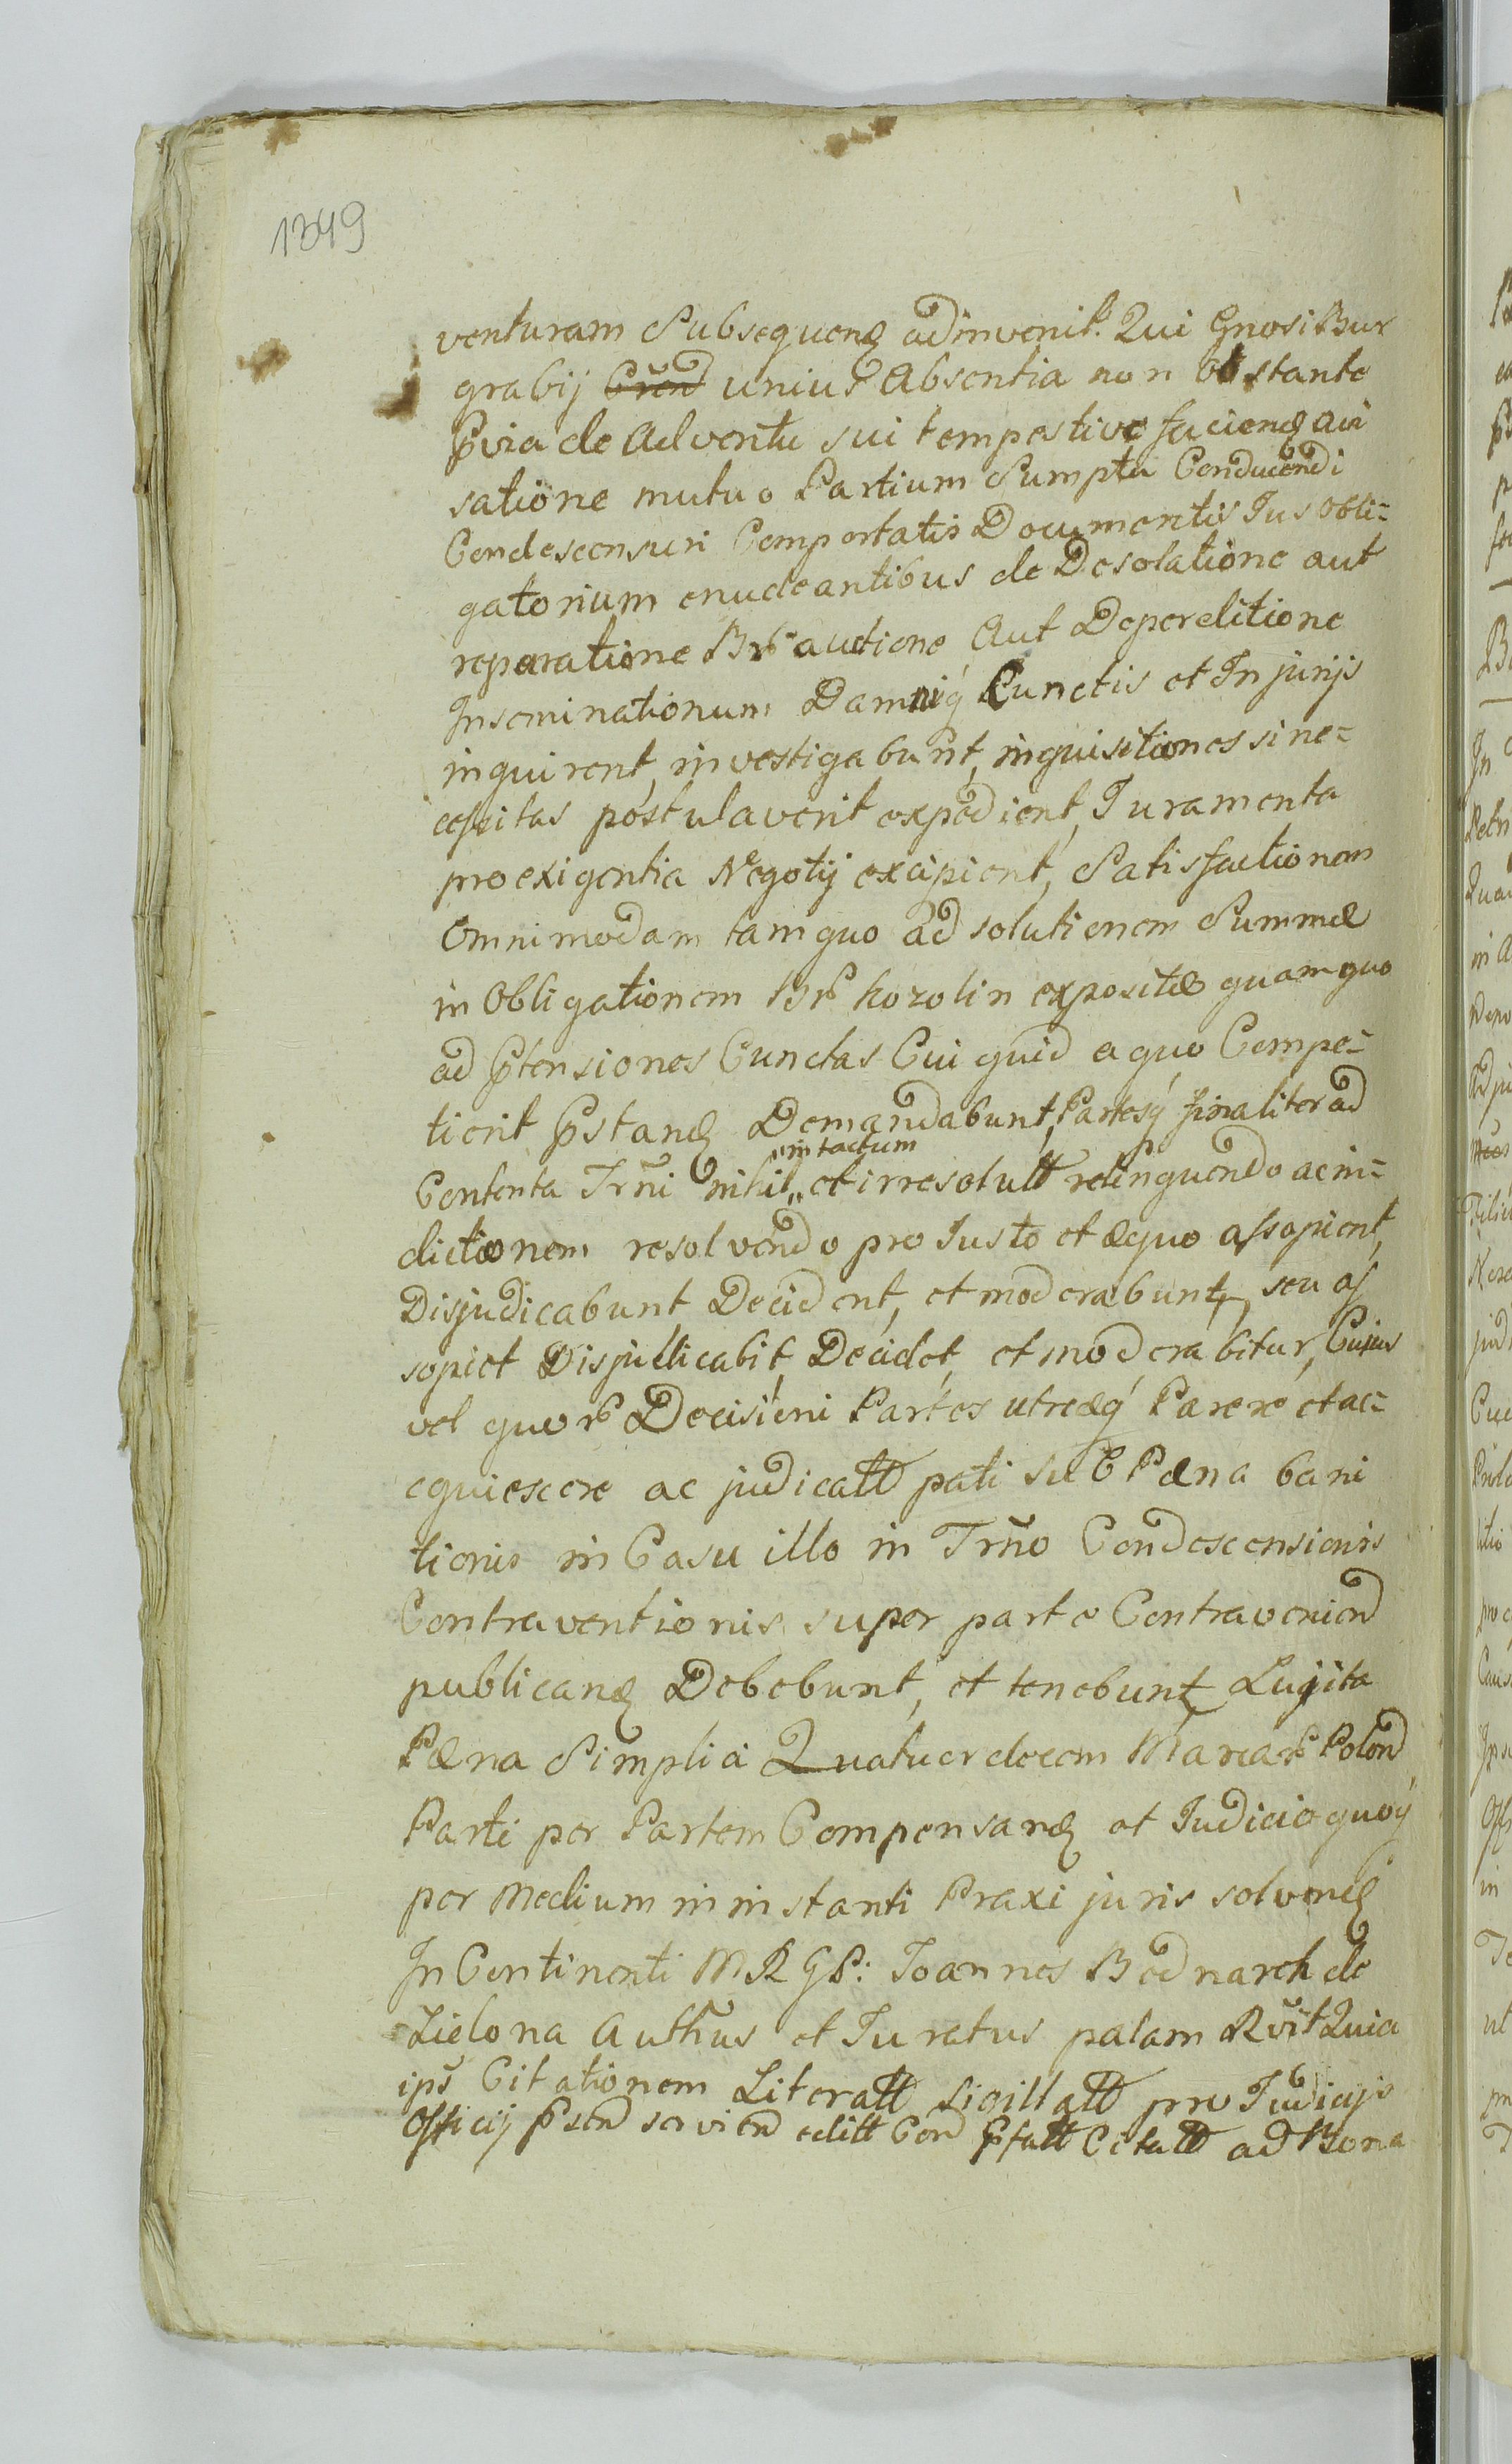 1349
venturam Subsequen adinvenit. Qui Gnosi Bur
grabij unius Absentia non obstante
Pvia de Adventu sui tempestive faciend avi
satione mutuo Partium Sumptu Conducendi
Condescensuri Comportatis Documentis Jus obli=
gatorium enudeantibus de Desolatione aut
reparatione Br auctione Aut Deperditione
Inseminationum Damniq Cunctis et Injurijs
inquirent, investigabunt, inquisitiones si ne=
cessitas postulaverit expedient, Juramenta
pro exigentia Negotij excipient, Satisfactionem
Omnimodam tam quo ad solutionem Summæ
in Obligationem Br Kozolin expositæ quam quo
ad Ptensiones Cunctas Cui quid a quo Compe=
tierit Pstand Demandabunt, Partesq finaliter ad
Contenta Trni nihil "intactum" et irresolutt relinquendo ac in=
dictionem resolvendo pro Justo et æquo assopient,
Disjudicabunt, Decident, et moderabuntr, seu as
sopiet Disjudicabit, Decidet, et moderabitur, Cujus
vel quor Decisioni Partes utræq Parere et ac=
cquiescere ac judicatt pati sub Pæna bani
tionis in Casu illo in Trno Condescensionis
Contraventionis super parte Contravenien
publicand Debebunt, et tenebuntr Lugita
Pæna Simplici Quatuordecem Marcar Polon
Parti per Partem Compensand et Judicio quoq
per Medium in instanti Praxi juris solvend
In Continenti M R G P: Joannes Bednarch de
Zielona Authus et Juratus palam Rvit Quia
ips Citationem Literatt Sigillatt pro Judicijs
Officij Psen servien editt Con Pfatt Citatt ad Bona